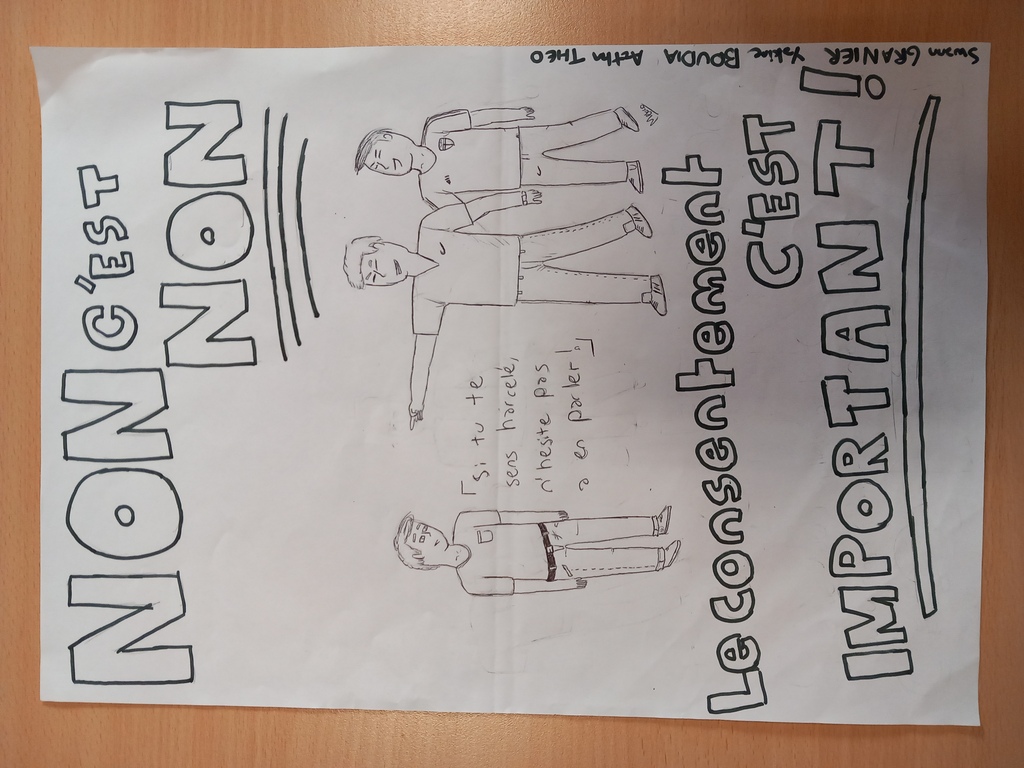 NON C'EST
NON
「si tu te
sens harcelé,
n'hesite pas
a en parler !」
Le consentement
C'EST
IMPORTANT !
Swann GRANIER Yakine BOUDIA THEO